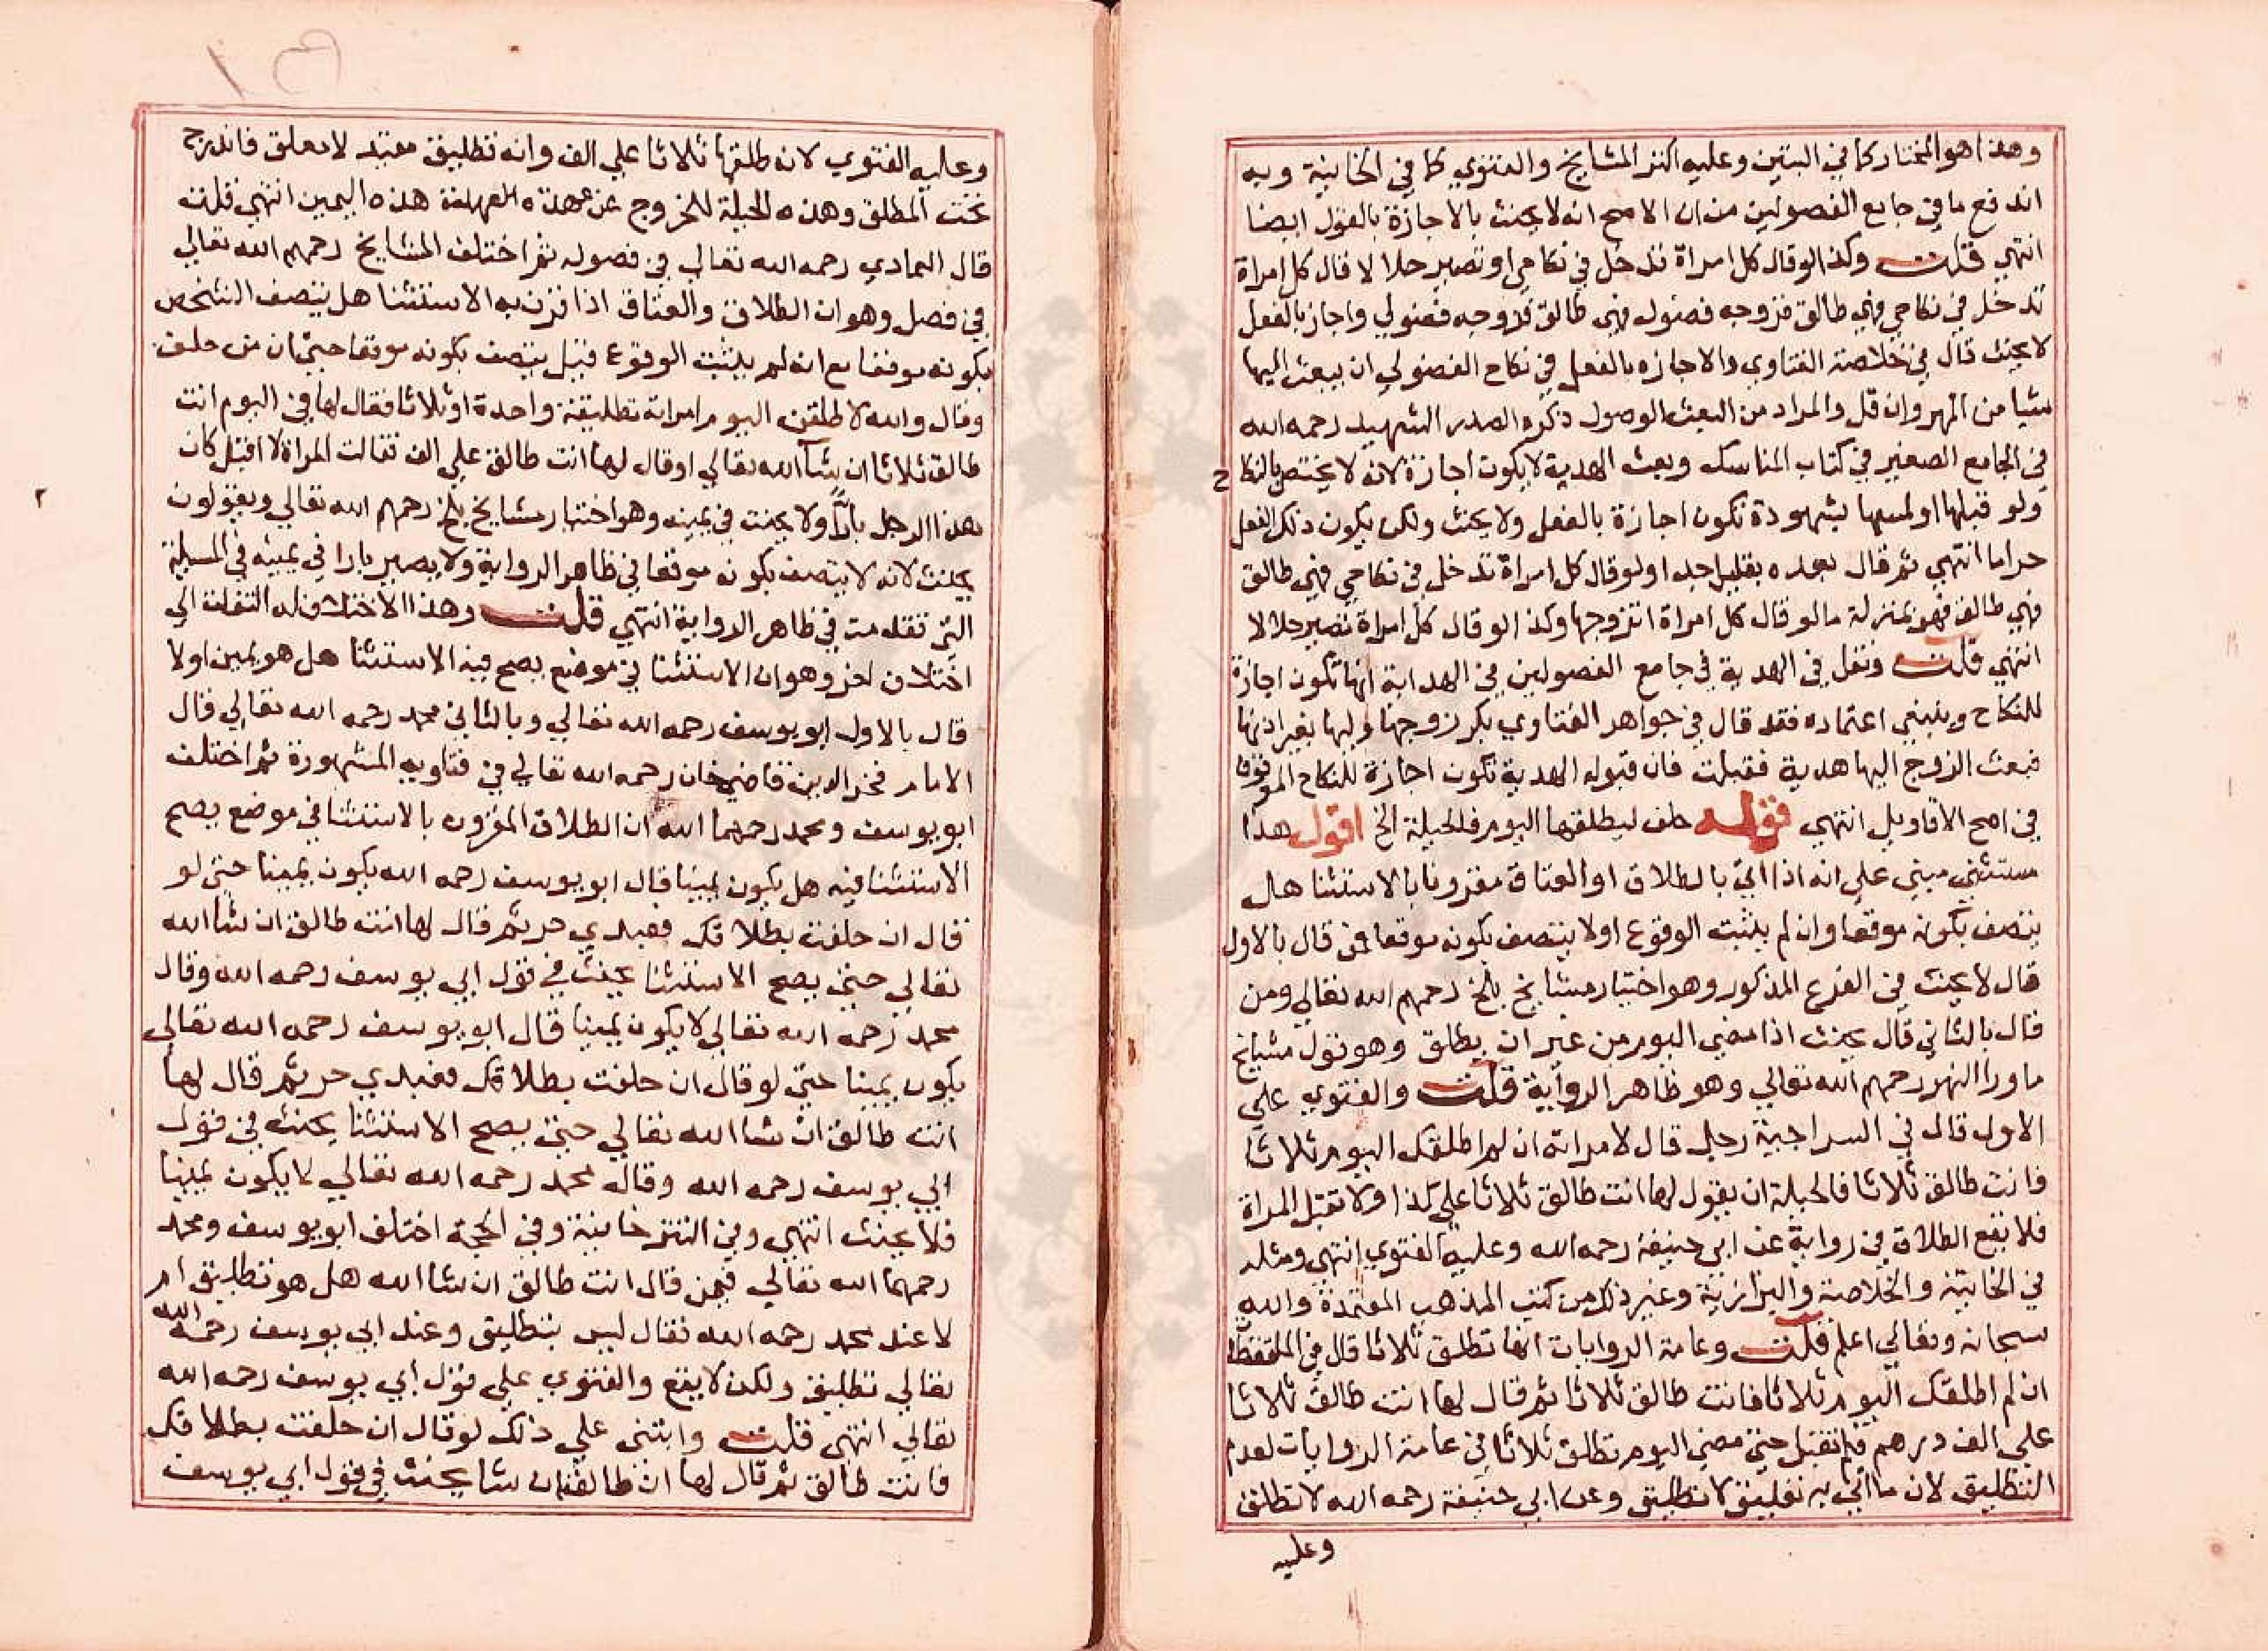 وهذا هو المختار كما في التبيين وعليه اكثر المشايخ والفتوي كما في الخانية وبه
اندفع ما في جامع الفصولين من ان الاصح انه لا يحنث بالاجازة بالقول ايضا
انتهي قلت وكذا لو قال كل امراة تدخل في نكاحي او تصير حلالا لا قال كل امراة
تدخل في نكاحي فهي طالق فزوجه فضولي فهي طالق فزوجه فضولي واجاز بالفعل
لا يحنث قال في خلاصة الفتاوي والاجازه بالفعل في نكاح الفضولي ان يبعث اليها
شيا من المهر وان قل والمراد من البعث الوصول ذكره الصدر الشهيد رحمه الله
في الجامع الصغير في كتاب المناسك وبعث الهدية لا يكون اجازة لانه لا يختص بالنكاح
ولو قبلها او لمسها بشهودة تكون اجازة بالفعل ولا يحنث ولكن يكون ذلك الفعل
حراما انتهي ثم قال بعده بقليل جدا ولو قال كل امراة تدخل في نكاحي فهي طالق
فهي طالق فهو بمنزلة ما لو قال كل امراة اتزوجها وكذا لو قال كل امراة تصير حلالا
انتهي قلت ونقل في الهدية في جامع الفصولين في الهداية انها تكون اجازة
للنكاح وينبغي اعتماده فقد قال في جواهر الفتاوي بكر زوجها وليها بغير اذنها
فبعث الزوج اليها هدية فقبلت فان قبول الهدية تكون اجازة للنكاح الموقوف
في اصح الاقاويل انتهي قوله حلف ليطلقها اليوم فالحيلة الخ اقول هذا
مستثني مبني علي انه اذا اتي بالطلاق او العتاق مقرونا بالاستثنا هل
يتصف بكونه موقعا وان لم يثبت الوقوع او لا يتصف بكونه موقعا فمن قال بالاول
قال لا يحنث في الفرع المذكور وهو اختيار مشايخ بلخ رحمهم الله تعالي ومن
قال بالثاني قال يحنث اذا مضي اليوم من غير ان يطلق وهو قول مشايخ
ما ورا النهر رحمهم الله تعالي وهو ظاهر الرواية قلت والفتوي علي
الاول قال في السراجية رجل قال لامراته ان لم اطلقك اليوم ثلاثا
فانت طالق ثلاثا فالحيلة ان يقول لها انت طالق ثلاثا علي كذا ولا تقبل المراة
فلا يقع الطلاق في رواية عن ابي حنيفة رحمه الله وعليه الفتوي انتهي ومثله
في الخانية والخلاصة والبزازية وغير ذلك من كتب المذهب المعتمدة والله
سبحانه وتعالي اعلم قلت وعامة الروايات انها تطلق ثلاثا قال في الملتقط
ان لم اطلقك اليوم ثلاثا فانت طالق ثلاثا ثم قال لها انت طالق ثلاثا
علي الف درهم فلم تقبل حتي مضي اليوم تطلق ثلاثا في عامة الروايات لعدم
التطليق لان ما اتي به تعليق لا تطليق وعن ابي حنيفة رحمه الله لا تطلق
وعليه
وعليه الفتوي لانه طلقها ثلاثا علي الف وانه تطليق مقيد لا معلق فاندرج
تحت المطلق وهذه الحيلة للخروج عن عهدة هذه اليمين انتهي قلت
قال العمادي رحمه الله تعالي في فصوله ثم اختلف المشايخ رحمهم الله تعالي
في فصل وهو ان الطلاق والعتاق اذا قرن به الاستثنا هل يتصف الشخص
بكونه موقعا مع انه لم يثبت الوقوع قيل يتصف بكونه موقعا حتي ان من حلف
وقال والله لاطلقن اليوم امراته تطليقة واحدة او ثلاثا فقال لها في اليوم انت
طالق ثلاثا ان شآ الله تعالي او قال لها انت طالق علي الف فقالت المراة لا اقبل كان
هذا الرجل بارا ولا يحنث في يمينه وهو اختيار مشايخ بلخ رحمهم الله تعالي ويقولون
يحنث لانه لا يتصف بكونه موقعا في ظاهر الرواية ولا يصير بارا في يمينه في المسيلة
التي تقدمت في ظاهر الرواية انتهي قلت وهذا الاختلاف له التفات الي
اختلاف اخر وهو ان الاستثنا في موضع يصح فيه الاستثنا هل هو يمين اولا
قال بالاول ابو يوسف رحمه الله تعالي وبالثاني محمد رحمه الله تعالي قال
الامام فخر الدين قاضي خان رحمه الله تعالي في فتاويه المشهورة ثم اختلف
ابو يوسف ومحمد رحمهما الله ان الطلاق المقرون بالاستثنا في موضع يصح
الاستثنا فيه هل يكون يمينا قال ابو يوسف رحمه الله يكون يمينا حتي لو
قال ان حلفت بطلاقك فعبدي حر ثم قال لها انت طالق ان شا الله
تعالي حتي يصح الاستثنا يحنث في قول ابي يوسف رحمه الله وقال
محمد رحمه الله تعالي لا يكون يمينا قال ابو يوسف رحمه الله تعالي
يكون يمينا حتي لو قال ان حلفت بطلاقك فعبدي حر ثم قال لها
انت طالق ان شا الله تعالي حتي يصح الاستثنا يحنث في قول
ابي يوسف رحمه الله وقال محمد رحمه الله تعالي لا يكون يمينا
فلا يحنث انتهي وفي التترخانية وفي الحجة اختلف ابو يوسف ومحمد
رحمهما الله تعالي فيمن قال انت طالق ان شا الله هل هو تطليق ام
لا عند محمد رحمه الله تعالي ليس بتطليق وعند ابي يوسف رحمه الله
تعالي تطليق ولكن لا يقع والفتوي علي قول ابي يوسف رحمه الله
تعالي انتهي قلت وابتني علي ذلك لو قال ان حلفت بطلاقك
فانت طالق ثم قال لها انت طالق ان شا يحنث في قول ابي يوسف